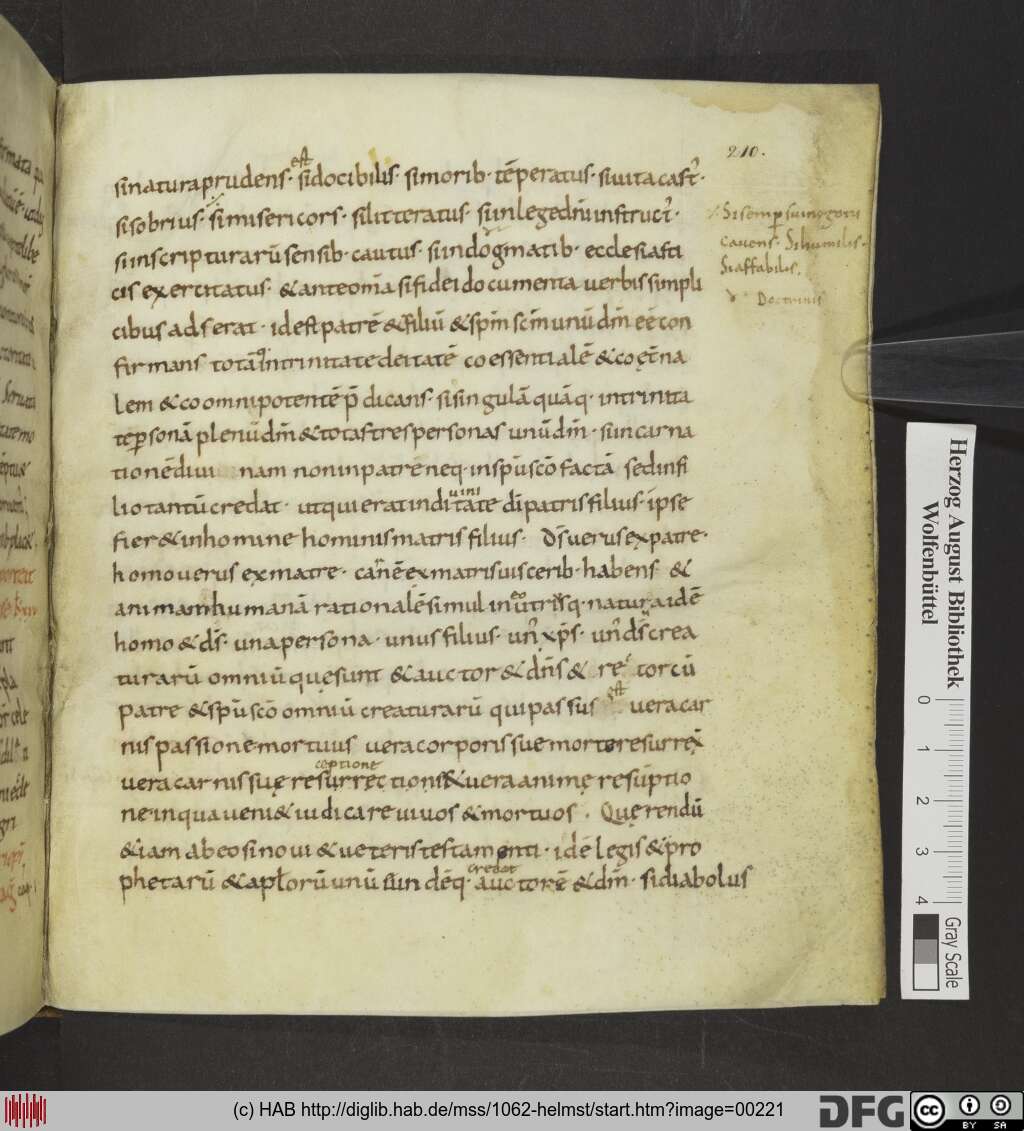 210.
si natura prudens · est si docibilis · si morib· tēperatus · si uita cast᷒ ·
si sobrius · si misericors · si litteratus · si in lege dn̄i instruct᷒ ·
si in scripturarū sensib· cautus · si in dogmatib· ecclesiasti
cis exercitatus · & ante om̄ia si fidei documenta uerbis simpli
cibus adserat · id est patrē & filiū & sp̄m sc̄m unū dm̄ eē con
firmans totāq in trinitate deitatē coessentialē & coęt̄na
lem & coomnipotentē p̄dicans · si singulā quāq· in trinita
te ꝑsonā plenū dm̄ & totas tres personas unū dm̄ · si incarna
tionē diui nam non in patre neq· in sp̄u sc̄o factā sed in fi
lio tantū credat · ut qui erat in diuinitate dī patris filius · ipse
fier& in homine hominis matris filius · Ds̄ uerus ex patre ·
homo uerus ex matre · carnē ex matris uiscerib· habens &
animam humanā rationalē simul in eo utrisq· natura idē
homo & ds̄ · una persona · unus filius · un᷒ xp̄s · un᷒ ds̄ crea
turarū omniū quę sunt & auctor & dn̄s & re torcū
patre & sp̄u sc̄o omniū creaturarū qui passus est uera car
nis passione mortuus uera corporis sue morte resurrex̄
uera carnis suę resurrectione & uera animę resūptio
ceptione
ne in qua ueni& iudicare uiuos & mortuos . Quęrendū
&iam ab eo si noui & ueteris testamenti · id ē legis & pro
phetarū & apl̄orū unū eundēq· credat auctorē & dm̄ · si diabolus
Si semp̄ sui negotii
cauens · Si humilis ·
Si affabilis.
Doctrinis
Herzog August Bibliothek
Wolfenbüttel
0 1 2 3 4
Gray Scale
(c) HAB http://diglib.hab.de/mss/1062-helmst/start.htm?image=00221
DFG
cc BY SA